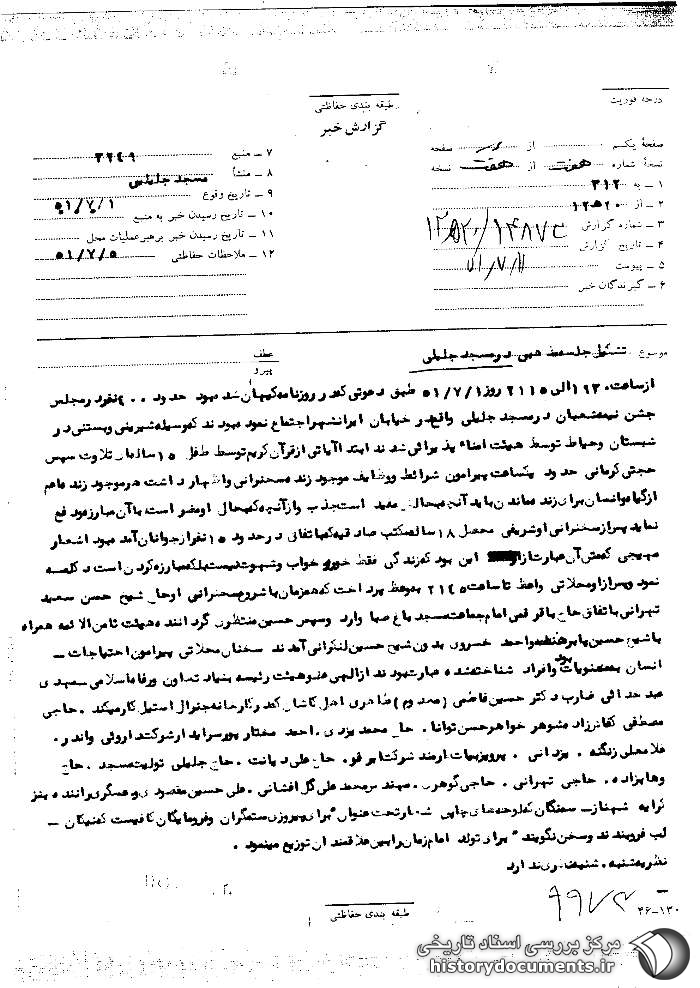 درجه فوریت
طبقه بندی حفاظتی
گزارش خبر
صفحهٔ یکم از صفحه
نسخهٔ شماره هفت از هفت نسخه
۱ ـ به ۳۱۲
۲ ـ از
۳ ـ شماره گزارش
۴ ـ تاریخ گزارش
۵ ـ پیوست
۶ ـ گیرندگان خبر
۷ ـ منبع ۳۲۴۹
۸ ـ منشأ مسجد جلیلی
۹ ـ تاریخ وقوع ۵۱/۷/۱
۱۰ ـ تاریخ رسیدن خبر به منبع
۱۱ ـ تاریخ رسیدن خبر برهبرعملیات محل
۱۲ ـ ملاحظات حفاظتی ۵۱/۷/۵
موضوع تشکیل جلسه مذهبی در مسجد جلیلی
عطف
پیرو
از ساعت الی ۲۱۱۵ روز ۵۱/۷/۱ طبق دعوتی که در روزنامه کیهان شده بود حدود ۴۰۰ نفر در مجلس
جشن نیمه شعبان در مسجد جلیلی واقع در خیابان ایرانشهر اجتماع نموده بودند که بوسیله شیرینی و بستنی در
شبستان و حیاط توسط هیئت امناء پذیرائی شدند ابتدا آیاتی از قرآن کریم توسط طفل ۱۵ ساله ای تلاوت سپس
حجتی کرمانی حدود یکساعت پیرامون شرائط و وظایف موجود زنده سخنرانی و اظهار داشت هر موجود زنده اعم
از گیاه و انسان برای زنده ماندن باید آنچه بحالش مفید است جذب و از آنچه که بحال او مضر است با آن مبارزه و دفع
نماید پس از سخنرانی او شریفی محصل ۱۸ ساله مکتب صادقیه که باتفاق در حدود ۱۵ نفر از جوانان آمده بود اشعار
مهیجی که متن آن عبارت از این بود که زندگی فقط خور و خواب و شهوت نیست بلکه مبارزه کردن است دکلمه
نمود و پس از او محلاتی واعظ تا ساعت ۲۱۴۵ به وعظ پرداخت که همزمان با شروع سخنرانی او حاج شیخ حسن سعید
تهرانی باتفاق حاج باقر قمی امام جماعت مسجد باغ صبا وارد و سپس حسین منتظری گرداننده هیئت ثامن الائمه همراه
با شیخ حسین پابرهنه و احمد خسروی بدون شیخ حسین لنکرانی آمدند سخنان محلاتی پیرامون احتیاجات ـ
انسان به معنویات بود و افراد شناخته شده عبارت بودند از الهی عضو هیئت رئیسه بنیاد تعاون و رفاه اسلامی ـ مهدی
عبدخدائی ضارب دکتر حسین فاطمی (معدوم) طاهری اهل کاشان که در کارخانه جنرال استیل کار میکند . حاجی
مصطفی کفائزاده شوهر خواهر حسن توانا . حاج محمد یزدی . احمد مختارپور سرایدار شرکت داروئی واندر .
غلامعلی زنگنه . یزدانی . پرویز بیات کارمند شرکت ابرقو . حاج علی دیانت . حاج جلیلی تولیت مسجد . حاج
وهابزاده . حاجی تهرانی . حاجی گوهری . مهندس محمد علی گل افشانی . علی حسین مقصودی و عسگری راننده بنز
کرایه شهناز ـ سمنگان که لوحه های چاپی شعار تحت عنوان "برای پیروزی ستمگران و فرومایگان کافیست که نیکان ـ
لب فروبندند و سخن نگویند" برای تولد امام زمان را بین علاقمندان توزیع مینمود .
نظریه شنبه . شنبه نظری ندارد
طبقه بندی حفاظتی
۴۶-۱۳۰
مرکز بررسی اسناد تاریخی
historydocuments.ir